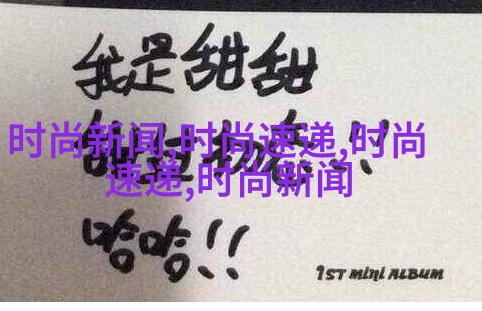 我是甜甜
时尚新闻,时尚速递,时尚
速递,时尚新闻
哈哈!!
1ST MINI ALBUM